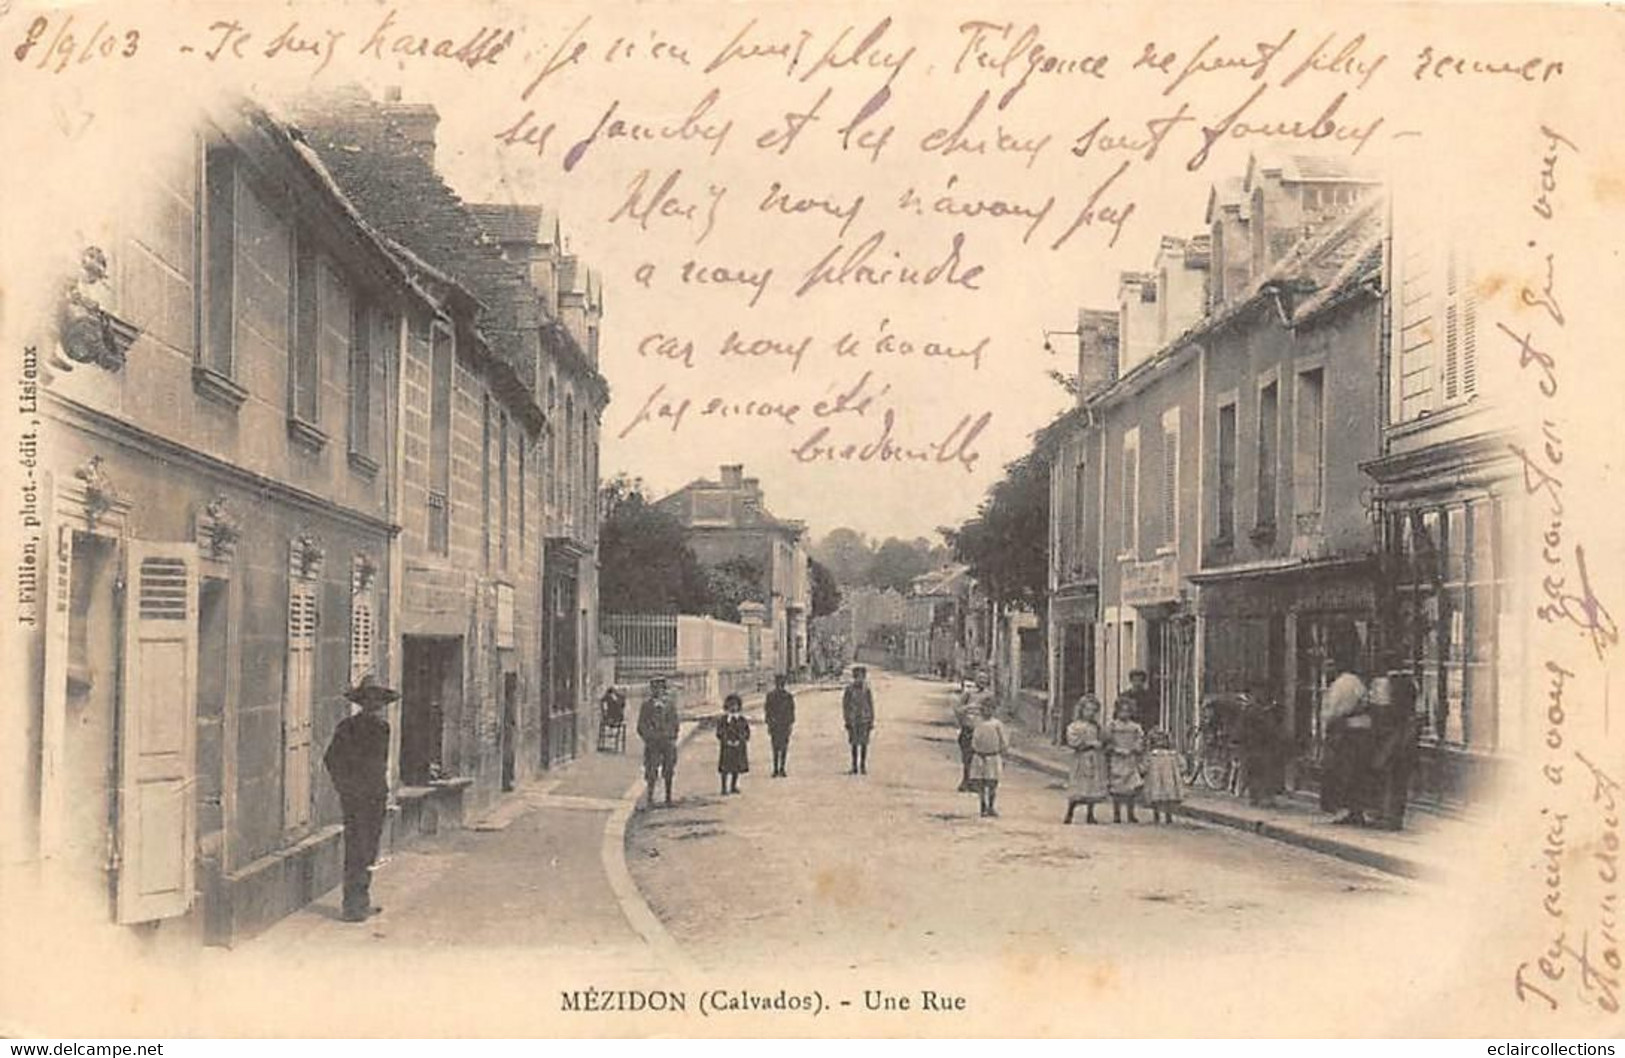 8/9/03 - Je suis harassé. je n'en puis plus. Fulgence ne peut plus remuer
ses jambes et les chiens sont fourbus -
Mais nous n'avons pas
a nous plaindre
car nous n'avons
pas encore été
bredouille
J'en aurai a vous raconter et qui vous
étonneront
J. Fillion, phot.-édit., Lisieux
MÉZIDON (Calvados). - Une Rue
eclaircollections